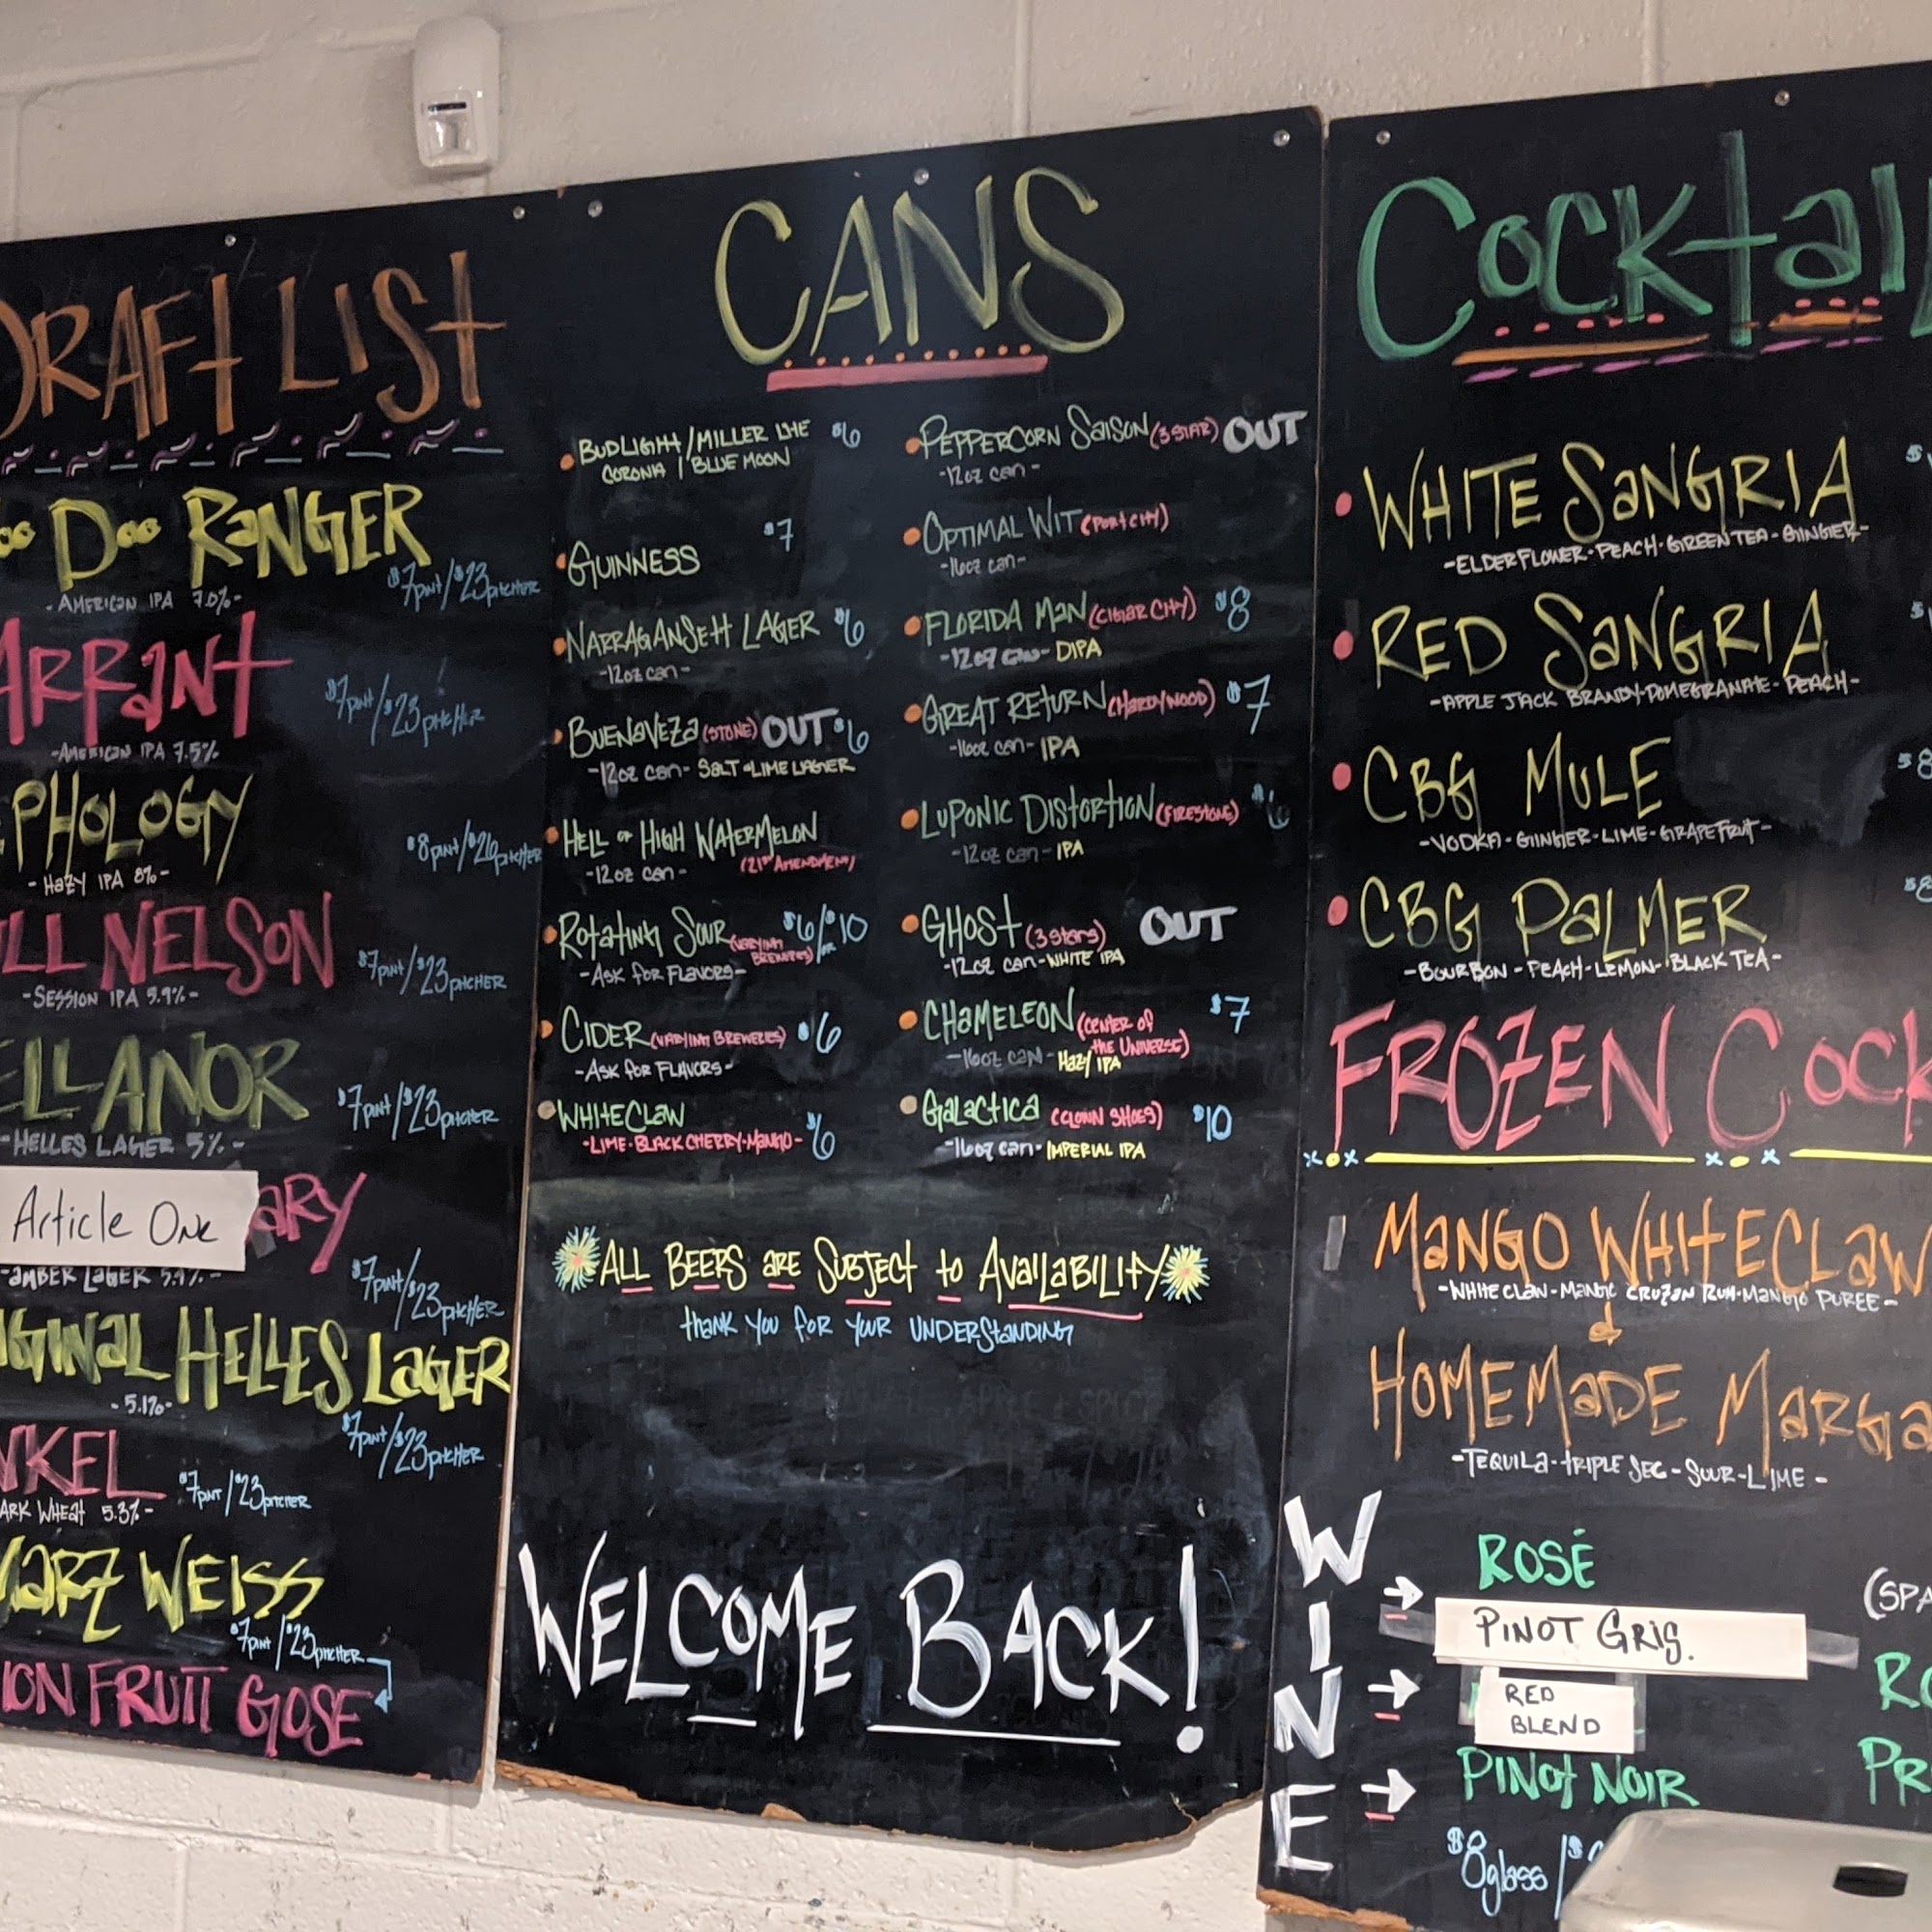 DRAFT LIST
Doo RANGER
- AMERICAN IPA 7.0% -
$7pint/$23pitcher
ARRANT
- AMERICAN IPA 7.5%
$7pint/$23pitcher
PHOLOGY
- HAZY IPA 8% -
$8pint/$26pitcher
LL NELSON
- SESSION IPA 5.9% -
$7pint/$23pitcher
ELLANOR
- HELLES LAGER 5% -
$7pint/$23pitcher
Article One ARY
- AMBER LAGER 5.9% -
$7pint/$23pitcher
IGINAL HELLES LAGER
- 5.1% -
$7pint/$23pitcher
NKEL
ARK WHEAT 5.3% -
$7pint/$23pitcher
WARZ WEISS
$7pint/$23pitcher
ION FRUIT GOSE
CANS
BUD LIGHT / MILLER LITE $6
CORONA / BLUE MOON
GUINNESS $7
NARRAGANSETT LAGER $6
- 12oz can -
BUENAVEZA (STONE) OUT $6
- 12oz can - SALT + LIME LAGER
HELL or HIGH WATERMELON
- 12oz can - (21st AMENDMENT)
ROTATING SOUR (VARYING BREWERIES) $6/or $10
- ASK FOR FLAVORS -
CIDER (VARYING BREWERIES) $6
- ASK FOR FLAVORS -
WHITE CLAW
- LIME - BLACK CHERRY - MANGO - $6
PEPPERCORN SAISON (3 STAR) OUT
- 12oz can -
OPTIMAL WIT (PORT CITY)
- 16oz can -
FLORIDA MAN (CIGAR CITY) $8
- 12oz can - DIPA
GREAT RETURN (HARDYWOOD) $7
- 16oz can - IPA
LUPONIC DISTORTION (FIRESTONE) $6
- 12oz can - IPA
GHOST (3 stars) OUT
- 12oz can - WHITE IPA
CHAMELEON (CENTER of the UNIVERSE) $7
- 16oz can - HAZY IPA
GALACTICA (CLOWN SHOES) $10
- 16oz can - IMPERIAL IPA
ALL BEERS ARE SUBJECT to AVAILABILITY
thank you for your UNDERSTANDING
WELCOME BACK!
COCKTAIL
WHITE SANGRIA $
- ELDERFLOWER - PEACH - GREEN TEA - GINGER -
RED SANGRIA $
- APPLE JACK BRANDY - POMEGRANATE - PEACH -
CBG MULE $8
- VODKA - GINGER - LIME - GRAPEFRUIT -
CBG PALMER $8
- BOURBON - PEACH - LEMON - BLACK TEA -
FROZEN COCK
MANGO WHITECLAW
- WHITE CLAW - MANGO CRUZAN RUM - MANGO PUREE -
&
HOMEMADE MARGA
- TEQUILA - TRIPLE SEC - SOUR - LIME -
WINE
ROSÉ
PINOT GRIG.
RED
BLEND
PINOT NOIR
$8glass/$
(SPA
RO
PR